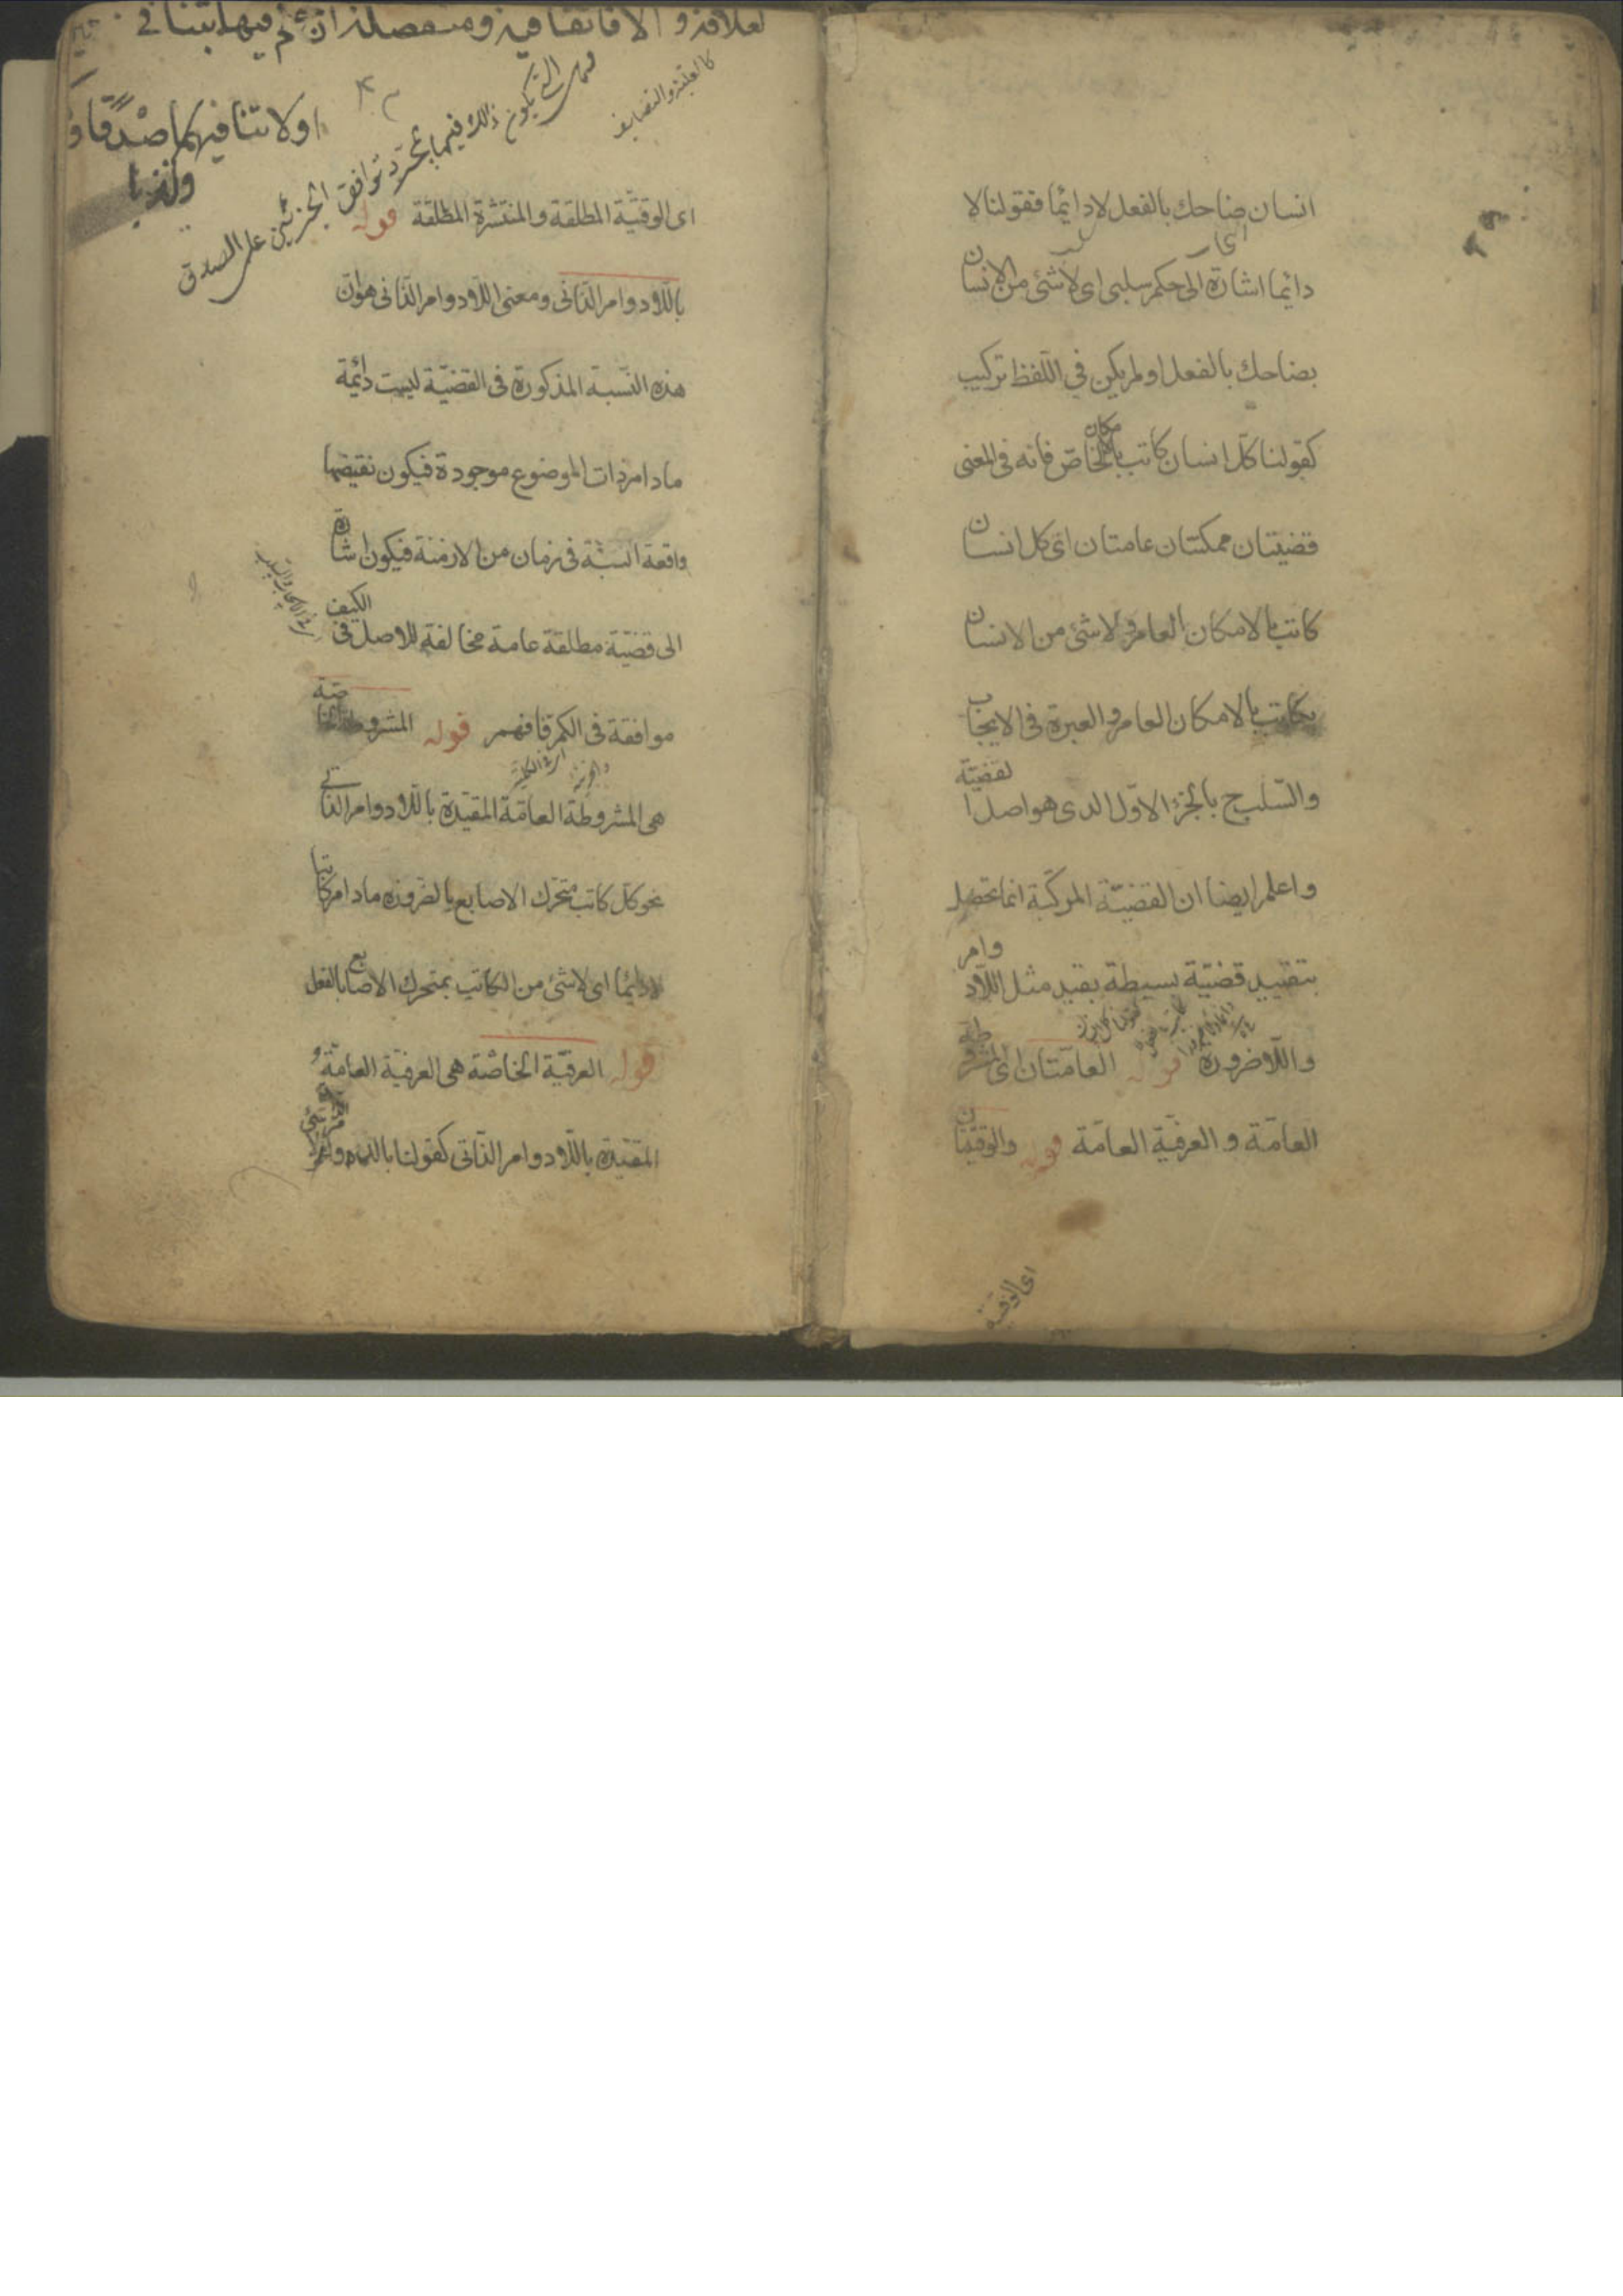 انسان ضاحك بالفعل لا دائما فقولنا لا
دائما اشارة الى حكم سلبى اى لا شئ من الانسان
بضاحك بالفعل او لم يكن فى اللفظ تركيب
كقولنا كل انسان كاتب بالامكان الخاص فانه فى المعنى
قضيتان ممكنتان عامتان اى كل انسان
كاتب بالامكان العام ولا شئ من الانسان
بكاتب بالامكان العام والعبرة فى الايجاب
والسلب ح بالجزء الاول الدى هو اصل القضية
واعلم ايضا ان القضية المركبة انما تحصل
بتقييد قضية بسيطة بقيد مثل اللادوام
واللاضرورة قوله العامتان اى المشروطة
العامة و العرفية العامة قوله والوقتيتان
اى الوقتية
اولا تنافيهما صدقا و
كالعلية والتضايف
ذلك فيها بمجرد توافق الجزئين على الصدق
اى الوقتية المطلقة والمنتشرة المطلقة قوله
باللادوام الذاتى ومعنى اللادوام الذاتى هو ان
هذه النسبة المذكورة فى القضية ليست دائمة
مادام ذات الموضوع موجودة فيكون نقيضها
واقعة البتة فى زمان من الازمنة فيكون اشارة
الى قضية مطلقة عامة مخالفة للاصل فى الكيف
موافقة فى الكم فافهم قوله المشروطة الخاصة
هى المشروطة العامة المقيدة باللادوام الذاتى
نحو كل كاتب متحرك الاصابع بالضرورة مادام كاتبا
لا دائما اى لا شئ من الكاتب بمتحرك الاصابع بالفعل
قوله العرفية الخاصة هى العرفية العامة
المقيدة باللادوام الذاتى كقولنا بالدوام لا شئ